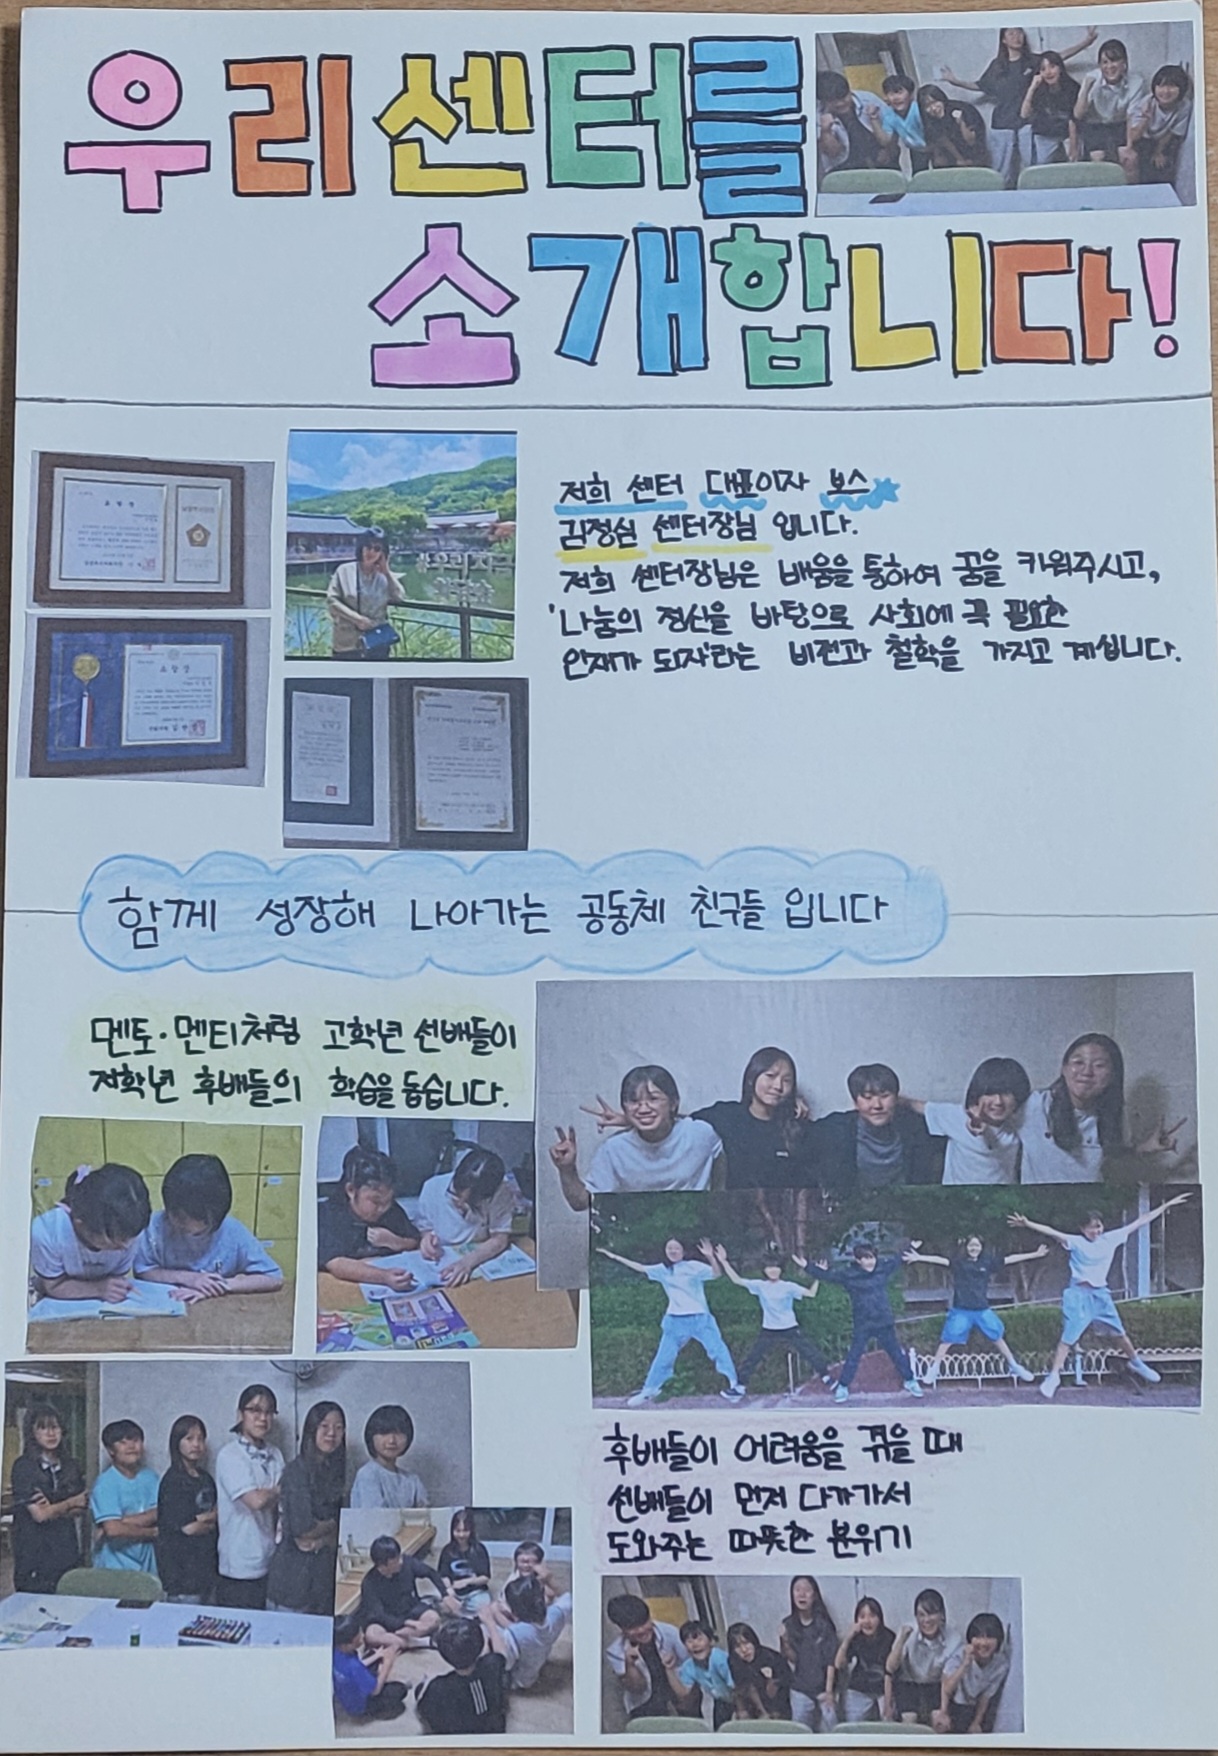 우리 센터를
소개합니다!
저희 센터 대표이자 보스
김정심 센터장님 입니다.
저희 센터장님은 배움을 통하여 꿈을 키워주시고,
'나눔의 정신을 바탕으로 사회에 꼭 필요한
인재가 되자'라는 비전과 철학을 가지고 계십니다.
표창장
함께 성장해 나아가는 공동체 친구들 입니다
멘토·멘티처럼 고학년 선배들이
저학년 후배들의 학습을 돕습니다.
후배들이 어려움을 겪을 때
선배들이 먼저 다가가서
도와주는 따뜻한 분위기